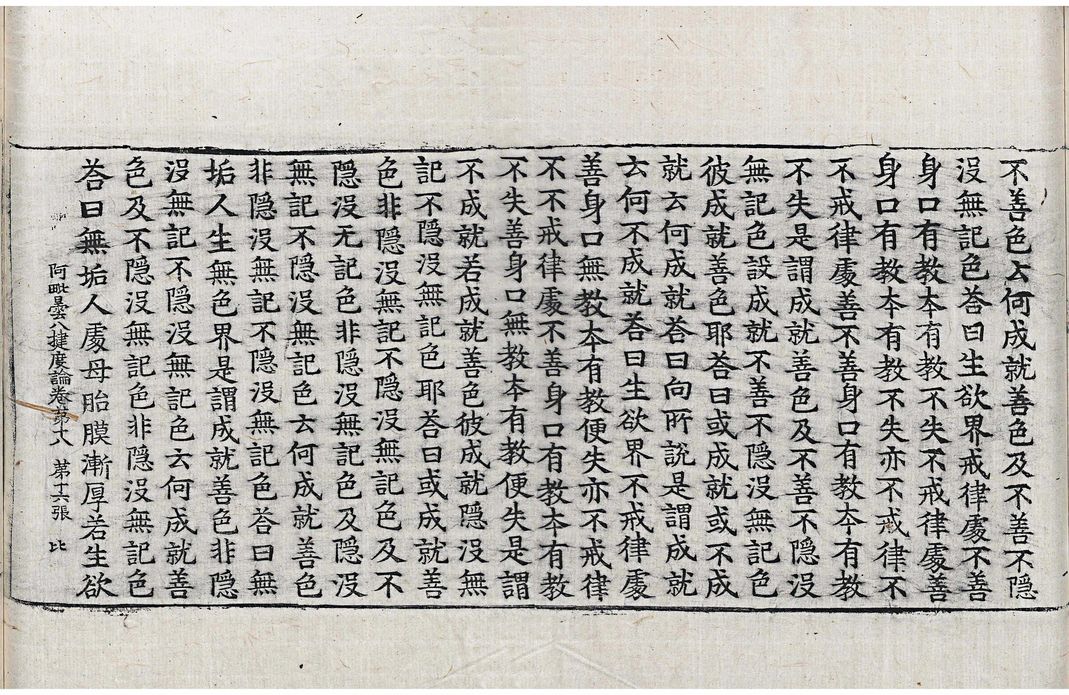 不善色云何成就善色及不善不隱
沒無記色荅曰生欲界戒律處不善
身口有教夲有教不失不戒律處善
身口有教夲有教不失亦不戒律不
不戒律處善不善身口有教夲有教
不失是謂成就善色及不善不隱沒
無記色設成就不善不隱沒無記色
彼成就善色耶荅曰或成就或不成
就云何成就荅曰向所說是謂成就
云何不成就荅曰生欲界不戒律處
善身口無教夲有教便失亦不戒律
不不戒律處不善身口有教夲有教
不失善身口無教夲有教便失是謂
不成就若成就善色彼成就隱沒無
記不隱沒無記色耶荅曰或成就善
色非隱沒無記不隱沒無記色及不
隱沒无記色非隱沒無記色及隱沒
無記不隱沒無記色云何成就善色
非隱沒無記不隱沒無記色荅曰無
垢人生無色界是謂成就善色非隱
沒無記不隱沒無記色云何成就善
色及不隱沒無記色非隱沒無記色
荅曰無垢人處母胎膜漸厚若生欲
阿毗曇八揵度論卷第十八 第十六張 比